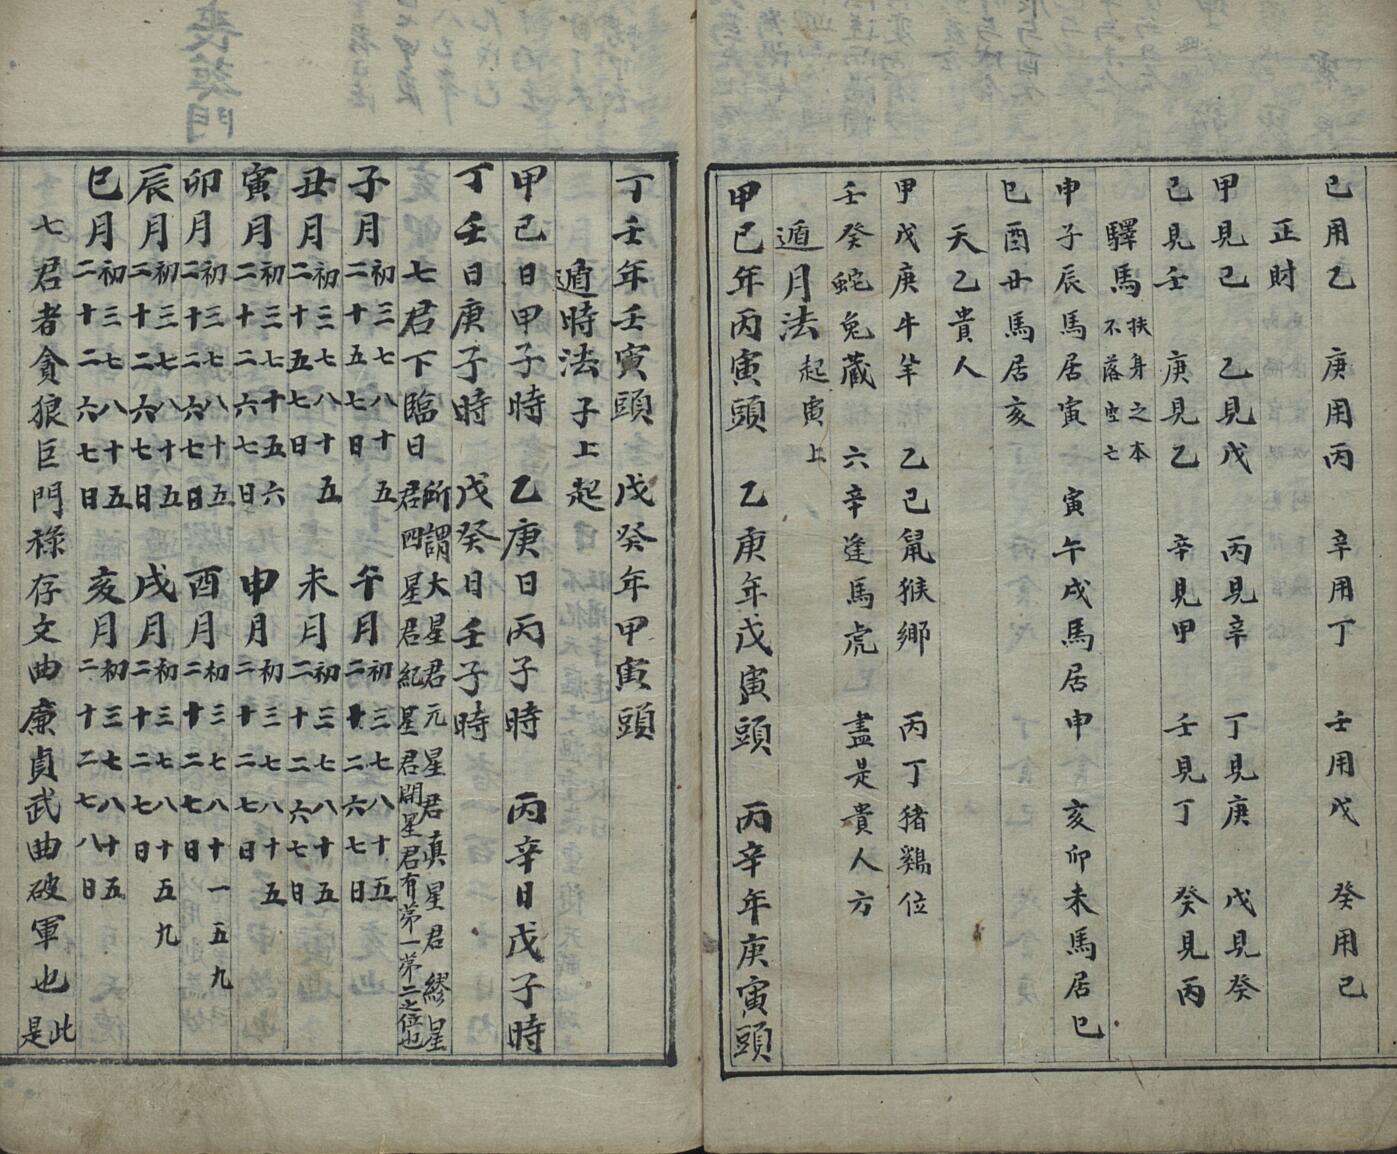 己用乙 庚用丙 辛用丁 壬用戊 癸用己
正財
甲見己 乙見戊 丙見辛 丁見庚 戊見癸
己見壬 庚見乙 辛見甲 壬見丁 癸見丙
驛馬 扶身之本 不落空亡
申子辰馬居寅 寅午戌馬居申 亥卯未馬居巳
巳酉丑馬居亥
天乙貴人
甲戊庚牛羊 乙己鼠猴鄉 丙丁猪鷄位
壬癸蛇兔藏 六辛逢馬虎 盡是貴人方
遁月法 起寅上
甲己年丙寅頭 乙庚年戊寅頭 丙辛年庚寅頭
丁壬年壬寅頭 戊癸年甲寅頭
遁時法 子上起
甲己日甲子時 乙庚日丙子時 丙辛日戊子時
丁壬日庚子時 戊癸日壬子時
七君下臨日 所謂大星君元星君眞星君繆星
君四星君紀星君開星君有第一第二之位也
子月 初三七八十五 二十五七日 午月 初三七八十五 二十二六七日
丑月 初三七八十五 二十五七日 未月 初三七八十五 二十二六七日
寅月 初三七十五六 二十二六七日 申月 初三七八十五 二十二七日
卯月 初三七八十五 二十二六七日 酉月 初三七八十一五九 二十二七日
辰月 初三七八十五 二十二六七日 戌月 初三七八十五九 二十二七日
巳月 初三七八十五 二十二六七日 亥月 初三七八十五 二十二七八日
七君者貪狼巨門祿存文曲廉貞武曲破軍也 此是